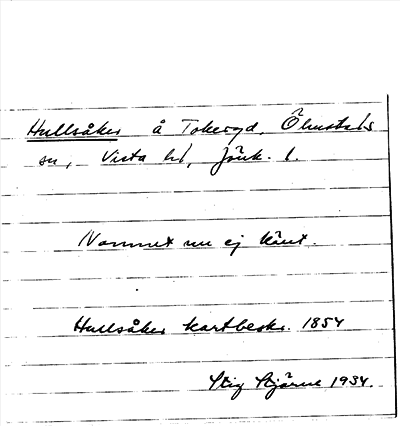 Hullsåker å Tokeryd, Ölmstads
sn, Vista hd, Jönk. l.
Namnet nu ej känt.
Hullsåker kartbeskr. 1854
Stig Stjärne 1934.